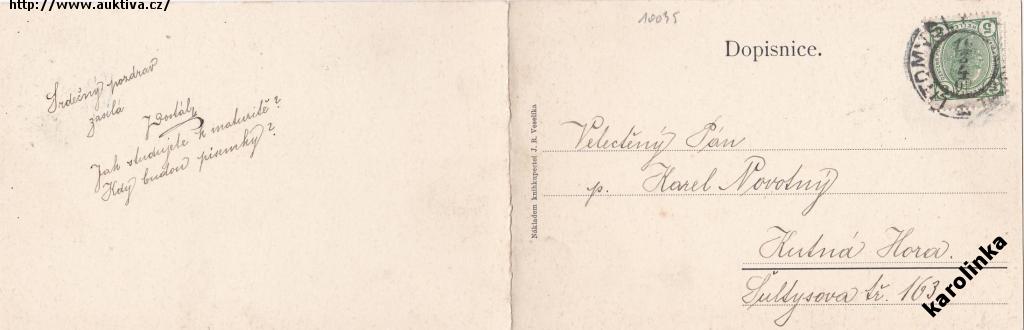 http://www.auktiva.cz/
Srdečný pozdrav
zasílá
JDostál
Jak studujete k maturitě?
Kdy budou písemky?
10035
Dopisnice.
Nákladem knihkupectví J. R. Veselíka
Velectěný Pán
p. Karel Novotný
Kutná Hora.
Šultysova tř. 163
LITOMYŠL
5
karolinka